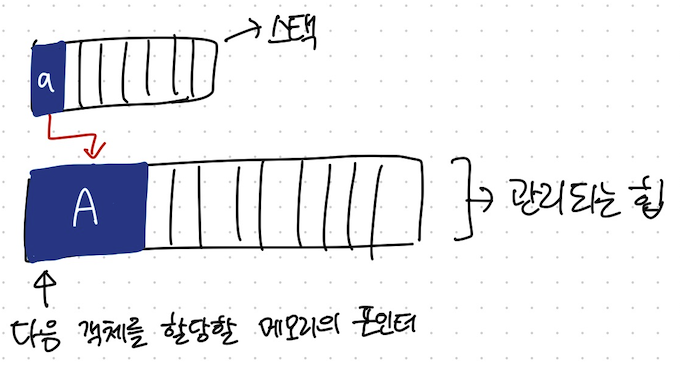 스택
a
A
관리되는 힙
다음 객체를 할당할 메모리의 포인터